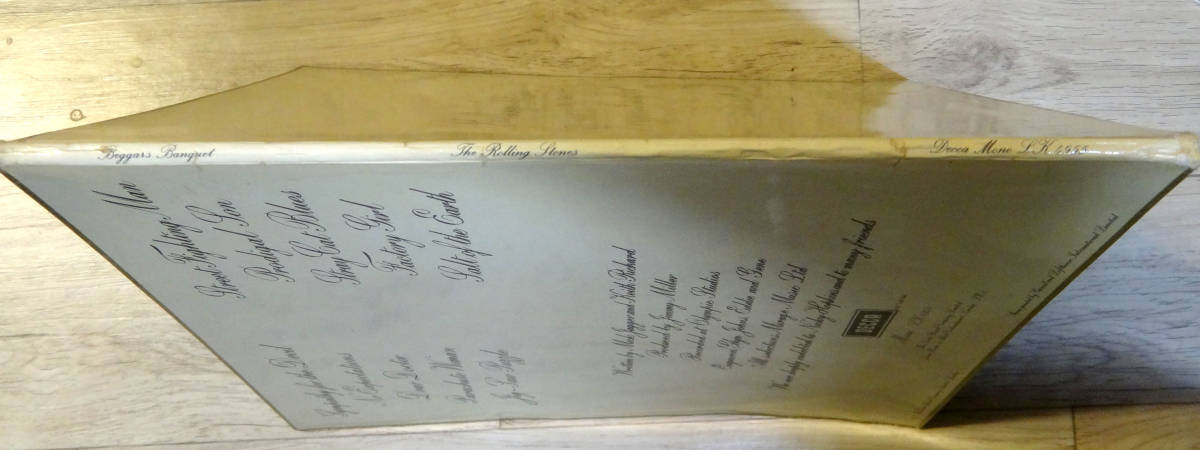 Beggars Banquet
The Rolling Stones
Decca Mono LK 4955
Street Fighting Man
Prodigal Son
Stray Cat Blues
Factory Girl
Salt of the Earth
Sympathy for the Devil
No Expectations
Dear Doctor
Parachute Woman
Jig-Saw Puzzle
Written by Mick Jagger and Keith Richard
Produced by Jimmy Miller
Recorded at Olympic Studios
Engineer Glyn Johns, Eddie and Gene
Music Ltd
We are deeply indebted to Nicky Hopkins and to many friends
DECCA